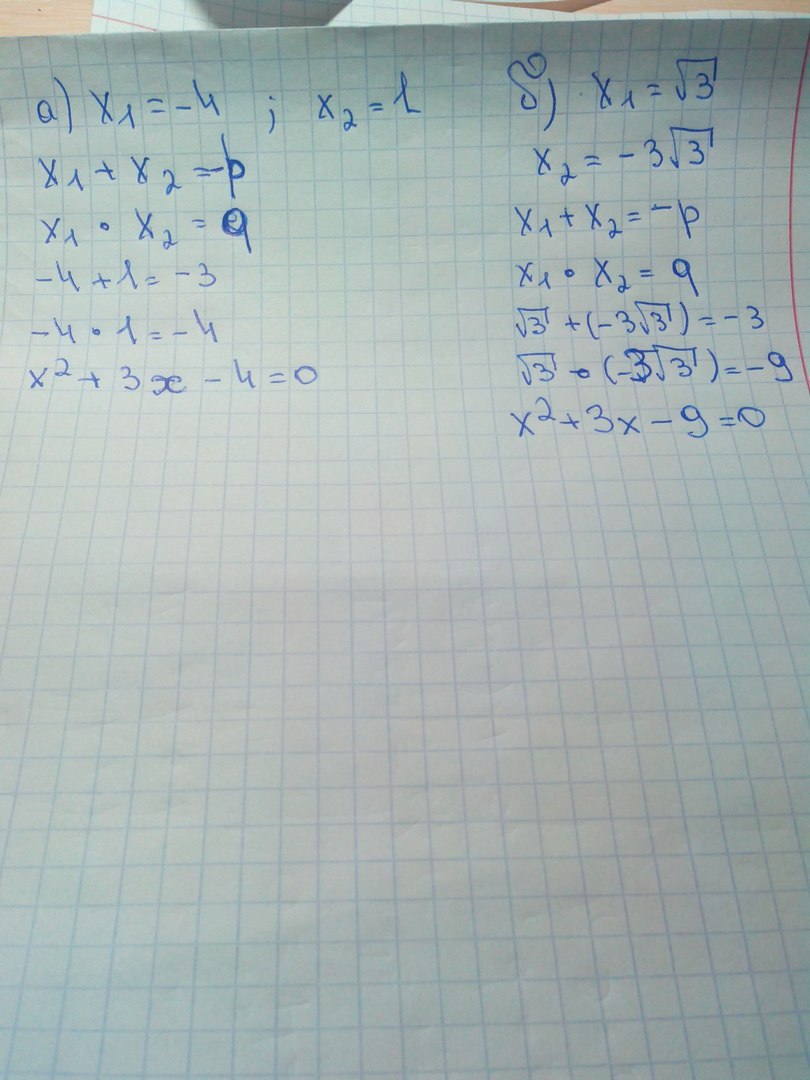 а) x₁ = -4 ; x₂ = 1
x₁ + x₂ = -p
x₁ · x₂ = q
-4 + 1 = -3
-4 · 1 = -4
x² + 3x - 4 = 0
б) x₁ = √3
x₂ = -3√3
x₁ + x₂ = -p
x₁ · x₂ = q
√3 + (-3√3) = -3
√3 · (-3√3) = -9
x² + 3x - 9 = 0